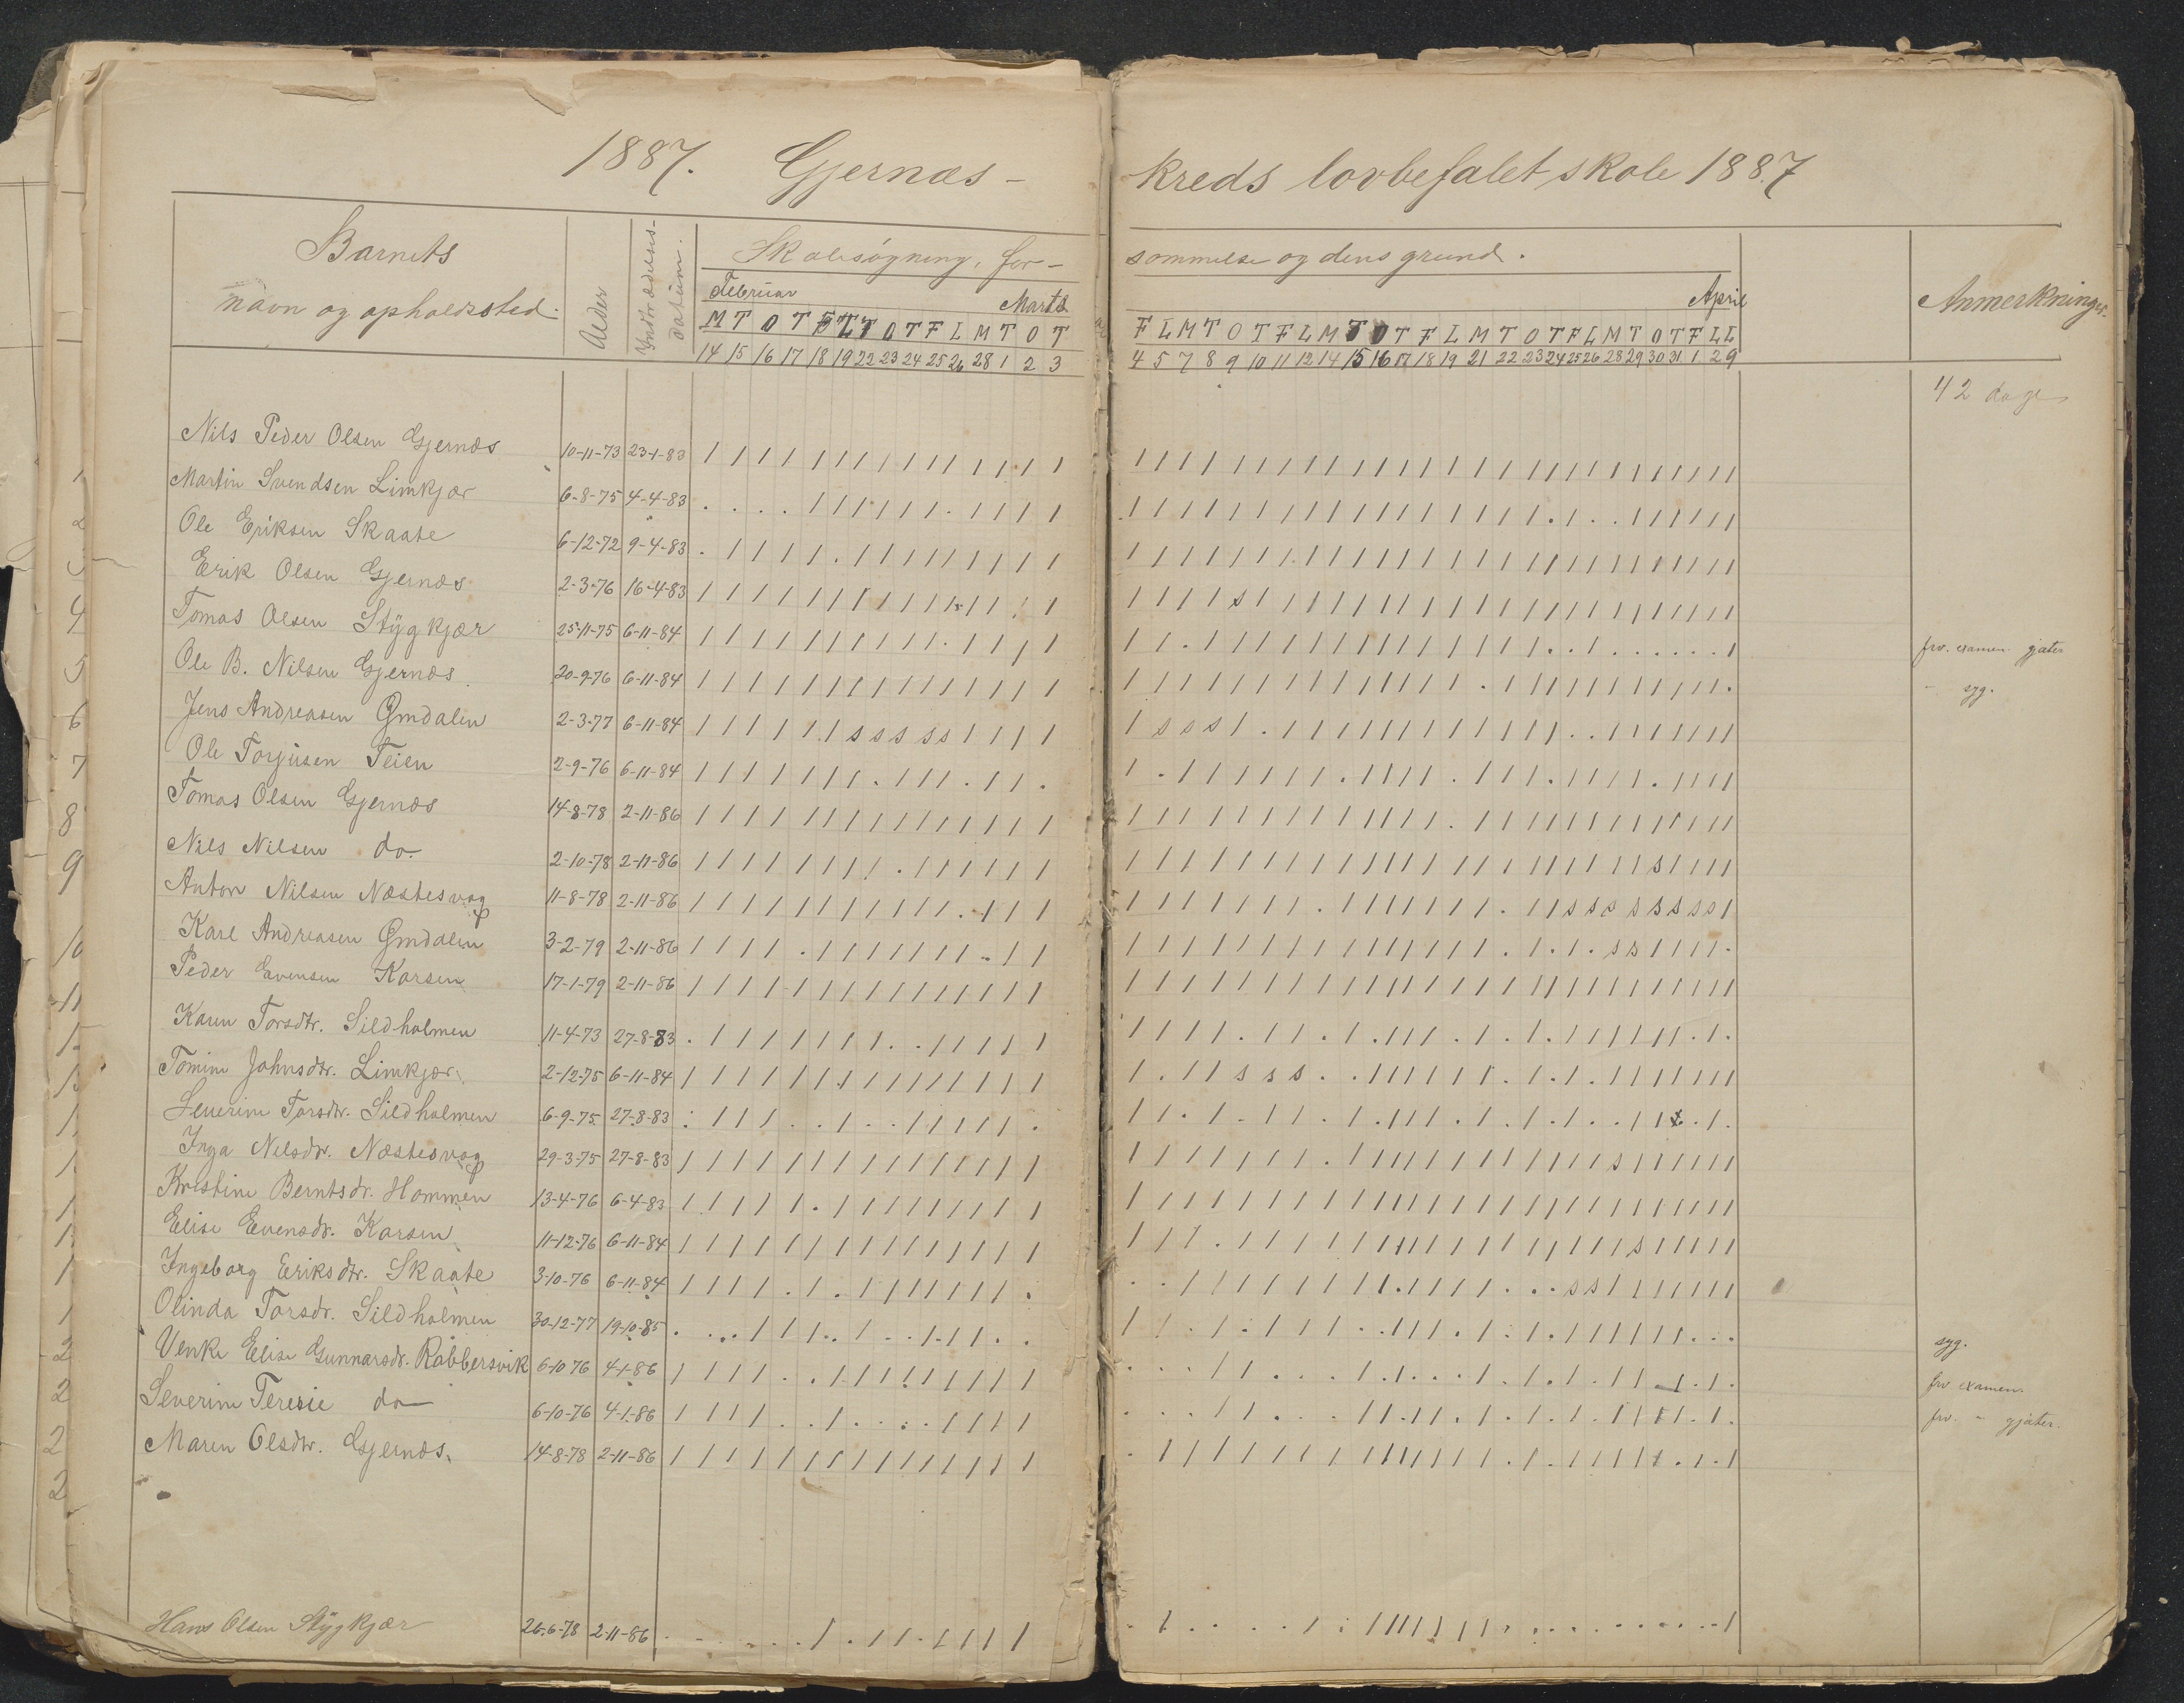 1887. Gjernæs-
kreds lovbefalet skole 1887
Barnets
navn og opholdssted.
Alder
Indtrædelses-
datum.
Skolesøgning, for-
sømmelse og dens grund.
Anmerkninger.
Februar Marts
April
M T O T F L T O T F L M T O T
F L M T O T F L M T O T F L M T O T F L M T O T F L L
14 15 16 17 18 19 22 23 24 25 26 28 1 2 3
4 5 7 8 9 10 11 12 14 15 16 17 18 19 21 22 23 24 25 26 28 29 30 31 1 2 9
42 dage
Nils Peder Olsen Gjernæs 10-11-73 23-1-83
Martin Svendsen Limkjær 6-8-75 4-4-83
Ole Eriksen Skaate 6-12-72 9-4-83
Erik Olsen Gjernæs 2-3-76 16-4-83
Tomas Olsen Stÿgkjær 25-11-75 6-11-84 frv. examen gjæter
Ole B. Nilsen Gjernæs 20-9-76 6-11-84 - syg.
Jens Andreasen Omdalen 2-3-77 6-11-84
Ole Torjusen Teien 2-9-76 6-11-84
Tomas Olsen Gjernæs 14-8-78 2-11-86
Nils Nilsen do. 2-10-78 2-11-86
Anton Nilsen Næstesvag 11-8-78 2-11-86
Karl Andreasen Omdalen 3-2-79 2-11-86
Peder Evensen Karsen 17-1-79 2-11-86
Karen Torsdtr. Sildholmen 11-4-73 27-8-83
Tomine Johnsdtr. Limkjær 2-12-75 6-11-84
Severine Torsdtr. Sildholmen 6-9-75 27-8-83
Inga Nilsdtr. Næstesvag 29-3-75 27-8-83
Kristine Berntsdr. Hommen 13-4-76 6-4-83
Elise Evensdr. Karsen 11-12-76 6-11-84
Ingeborg Eriksdtr. Skaate 3-10-76 6-11-84
Olinda Torsdr. Sildholmen 30-12-77 19-10-85 syg.
Venke Elise Gunnarsdr. Rabbersvik 6-10 76 4-1-86 frv examen.
Severine Teresie do 6-10-76 4-1-86 frv. - gjæter.
Maren Olsdtr. Gjernæs. 14-8-78 2-11-86
Hans Olsen Stÿgkjær 26-6-78 2-11-86